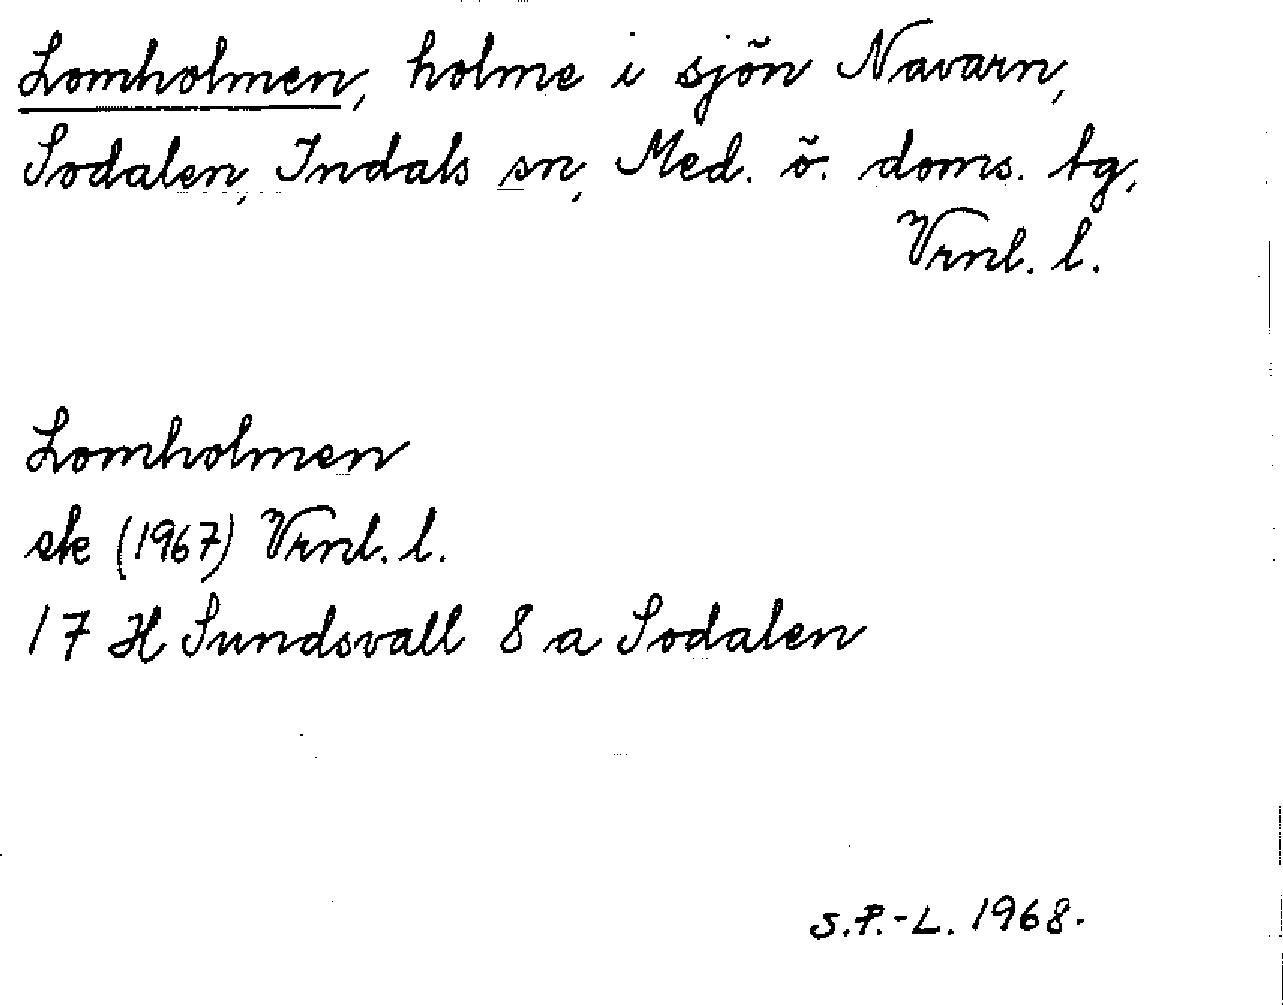 Lomholmen, holme i sjön Navarn,
Sodalen, Indals sn, Med. ö. doms. tg,
Vrnl. l.
Lomholmen
ek (1967) Vrnl. l.
17 H Sundsvall 8 a Sodalen
S.P.-L. 1968.